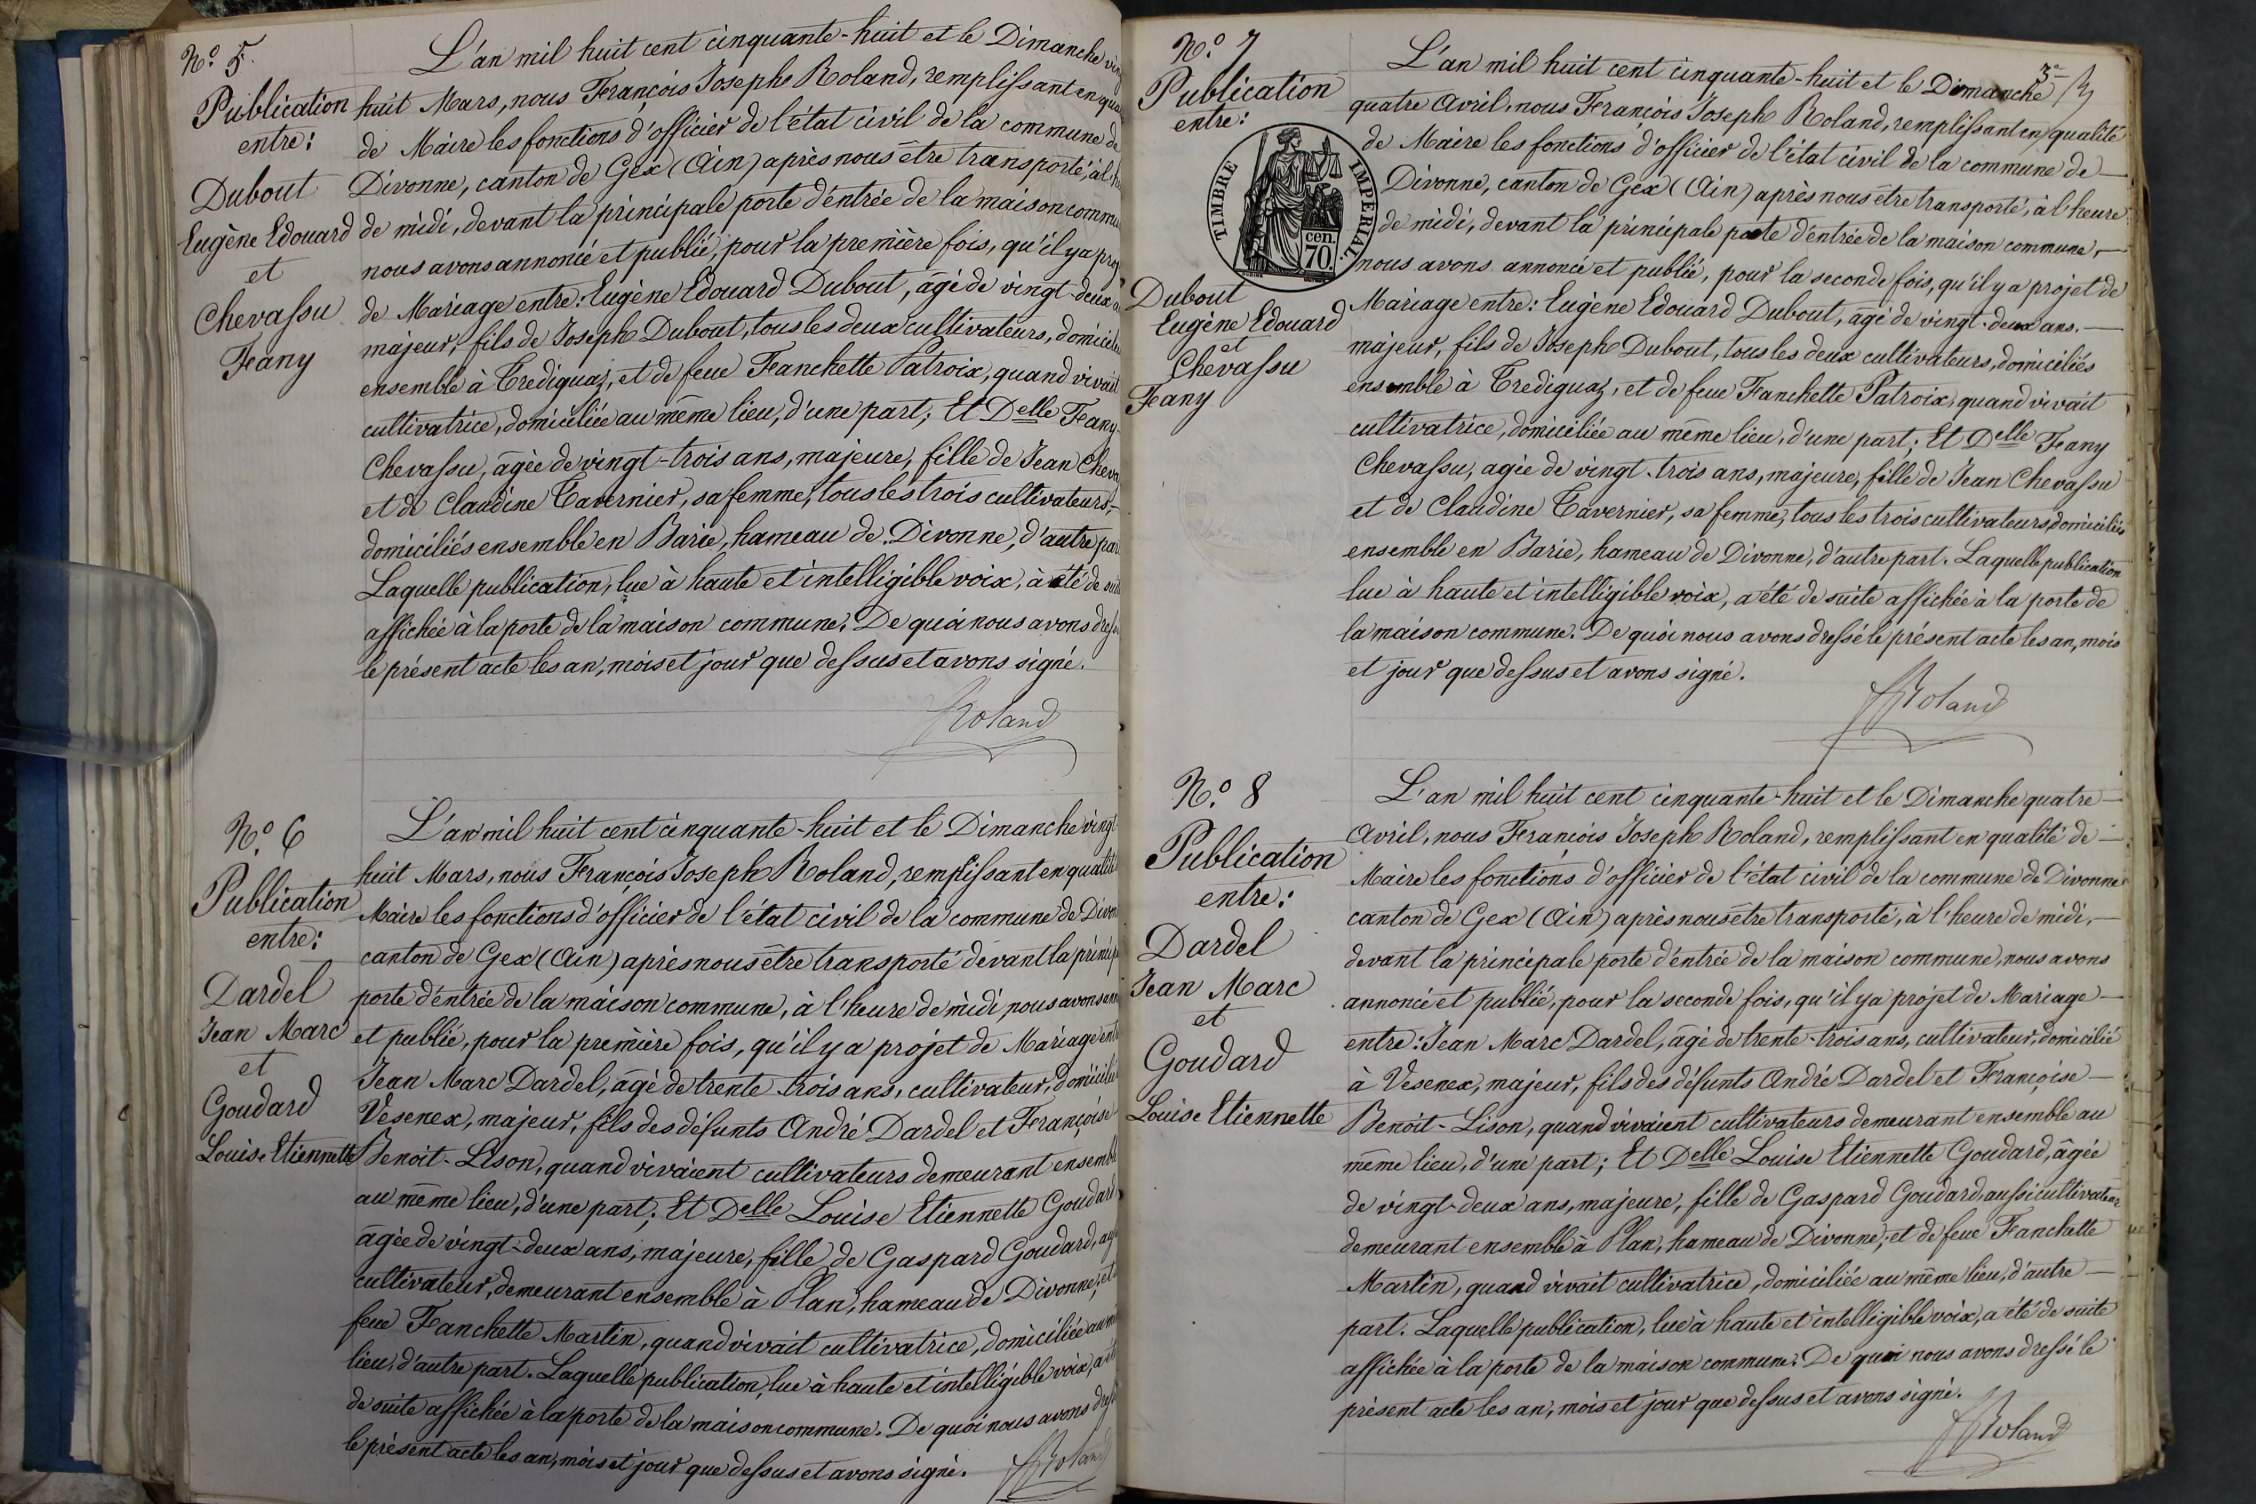 N.° 5.
Publication
entre:
Dubout
Eugène Edouard
et
Chevassu
Feany
L'an mil huit cent cinquante-huit et le Dimanche vingt
huit Mars, nous François Joseph Roland, remplissant en qua
de Maire les fonctions d'officier de l'état civil de la commune de
Divonne, canton de Gex (Ain) après nous être transporté, à l'h
de midi, devant la principale porte d'entrée de la maison commu
nous avons annoncé et publié, pour la première fois, qu'il y a proj
de Mariage entre: Eugène Edouard Dubout, âgé de vingt-deux a
majeur, fils de Joseph Dubout, tous les deux cultivateurs, domicili
ensemble à Trediguaz, et de feue Fanchette Patroix, quand vivait
cultivatrice, domiciliée au même lieu, d'une part; Et Delle Feany
Chevassu, âgée de vingt-trois ans, majeure, fille de Jean Cheva
et de Claudine Tavernier, sa femme, tous les trois cultivateurs,
domiciliés ensemble en Barie, hameau de Divonne, d'autre par
Laquelle publication, lue à haute et intelligible voix, à été de sui
affichée à la porte de la maison commune. De quoi nous avons dress
le présent acte les an, mois et jour que dessus et avons signé.
Roland
N.° 6
Publication
entre:
Dardel
Jean Marc
et
Goudard
Louise Etiennette
L'an mil huit cent cinquante-huit et le Dimanche vingt
huit Mars, nous François Joseph Roland, remplissant en qualité
Maire les fonctions d'officier de l'état civil de la commune de Divon
canton de Gex (Ain) après nous être transporté devant la princip
porte d'entrée de la maison commune, à l'heure de midi nous avons ann
et publié, pour la première fois, qu'il y a projet de Mariage entr
Jean Marc Dardel, âgé de trente-trois ans, cultivateur, domicilié
Vesenex, majeur, fils des défunts André Dardel et Françoise
Benoit-Lison, quand vivaient cultivateurs demeurant ensembl
au même lieu, d'une part; Et Delle Louise Etiennette Goudard
âgée de vingt-deux ans, majeure, fille de Gaspard Goudard, au
cultivateur, demeurant ensemble à Plan, hameau de Divonne, et
feue Fanchette Martin, quand vivait cultivatrice, domiciliée au m
lieu, d'autre part. Laquelle publication, lue à haute et intelligible voix, a ét
de suite affichée à la porte de la maison commune. De quoi nous avons dress
le présent acte les an, mois et jour que dessus et avons signé.
Roland
3e
N.° 7
Publication
entre:
TIMBRE IMPERIAL.
cen.
70.
Dubout
Eugène Edouard
et
Chevassu
Feany
L'an mil huit cent cinquante-huit et le Dimanche
quatre Avril, nous François Joseph Roland, remplissant en qualité
de Maire les fonctions d'officier de l'état civil de la commune de
Divonne, canton de Gex (Ain) après nous être transporté, à l'heure
de midi, devant la principale porte d'entrée de la maison commune,
nous avons annoncé et publié, pour la seconde fois, qu'il y a projet de
Mariage entre: Eugène Edouard Dubout, âgé de vingt-deux ans.
majeur, fils de Joseph Dubout, tous les deux cultivateurs, domiciliés
ensemble à Trediguaz, et de feue Fanchette Patroix, quand vivait
cultivatrice, domiciliée au même lieu, d'une part; Et Delle Feany
Chevassu, agée de vingt-trois ans, majeure, fille de Jean Chevassu
et de Claudine Tavernier, sa femme, tous les trois cultivateurs, domiciliés
ensemble en Barie, hameau de Divonne, d'autre part. Laquelle publication
lue à haute et intelligible voix, a été de suite affichée à la porte de
la maison commune. De quoi nous avons dressé le présent acte les an, mois
et jour que dessus et avons signé.
Roland
N.° 8
Publication
entre:
Dardel
Jean Marc
et
Goudard
Louise Etiennette
L'an mil huit cent cinquante-huit et le Dimanche quatre
Avril, nous François Joseph Roland, remplissant en qualité de
Maire les fonctions d'officier de l'état civil de la commune de Divonne
canton de Gex (Ain) après nous être transporté, à l'heure de midi,
devant la principale porte d'entrée de la maison commune, nous avons
annoncé et publié, pour la seconde fois, qu'il y a projet de Mariage
entre: Jean Marc Dardel, âgé de trente-trois ans, cultivateur, domicilié
à Vesenex, majeur, fils des défunts André Dardel et Françoise
Benoit-Lison, quand vivaient cultivateurs demeurant ensemble au
même lieu, d'une part; Et Delle Louise Etiennette Goudard, âgée
de vingt-deux ans, majeure, fille de Gaspard Goudard, aussi cultivateur
demeurant ensemble à Plan, hameau de Divonne, et de feue Fanchette
Martin, quand vivait cultivatrice, domiciliée au même lieu, d'autre
part. Laquelle publication, lue à haute et intelligible voix, a été de suite
affichée à la porte de la maison commune. De quoi nous avons dressé le
présent acte les an, mois et jour que dessus et avons signé.
Roland